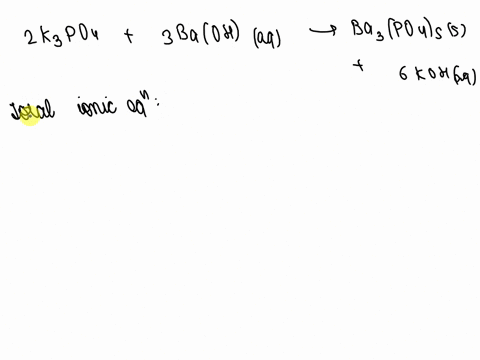 2K3PO4 + 3Ba(OH) (aq) → Ba3(PO4)5(s)
+ 6KOH(aq)
Total ionic eqn: